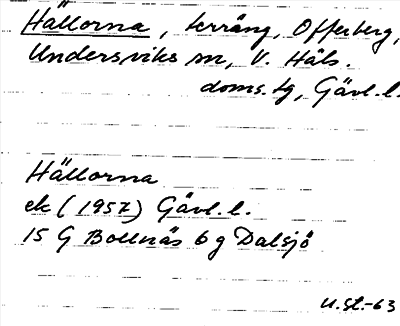 Hällorna, terräng, Offerberg,
Undersviks sn, V. Häls.
doms.tg, Gävl.l.
Hällorna
ek (1957) Gävl.l.
15 G Bollnäs 6 g Dalsjö
U.St.-63